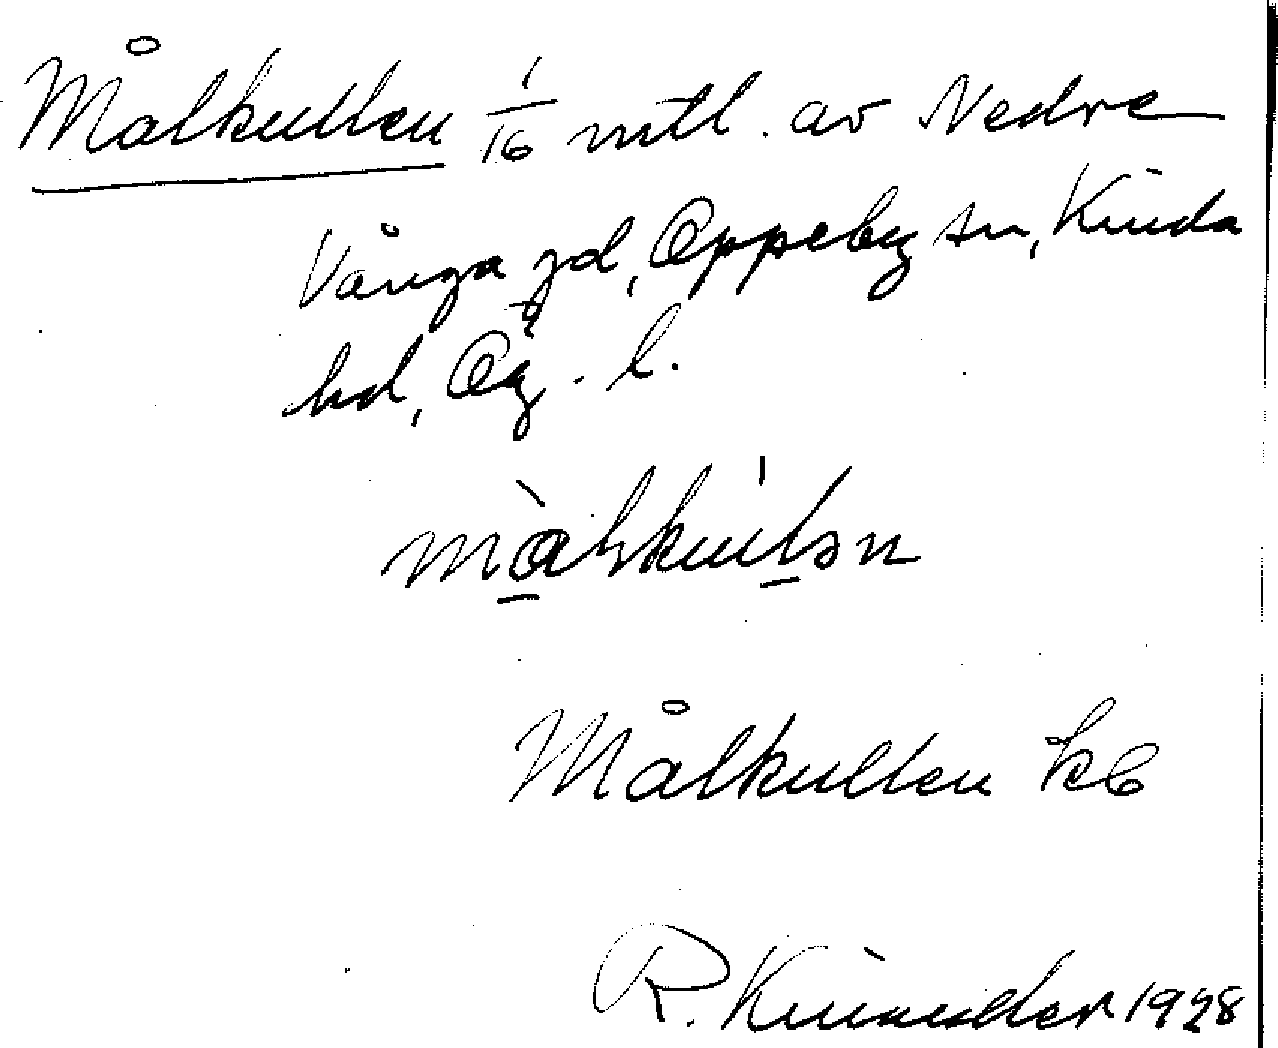 Målkullen 1/16 mtl. av Nedre
Vånga gd, Oppeby sn, Kinda
hd, Ög. l.
Målkullen kb
R. Kinander 1928